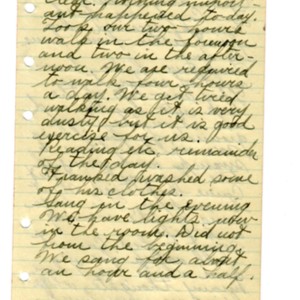 clear. Nothing import-
ant happened to-day.
Took our two hours
walk in the forenoon
and two in the after-
noon. We are required
to walk four hours
a day. We get tired
walking as it is very
dusty but it is good
exercise for us.
Reading etc. remainder
of the day.
washed some
of his clothes.
Sang in the evening
We have lights now
in the room. Did not
from the beginning.
We sang for almost
an hour and a half.